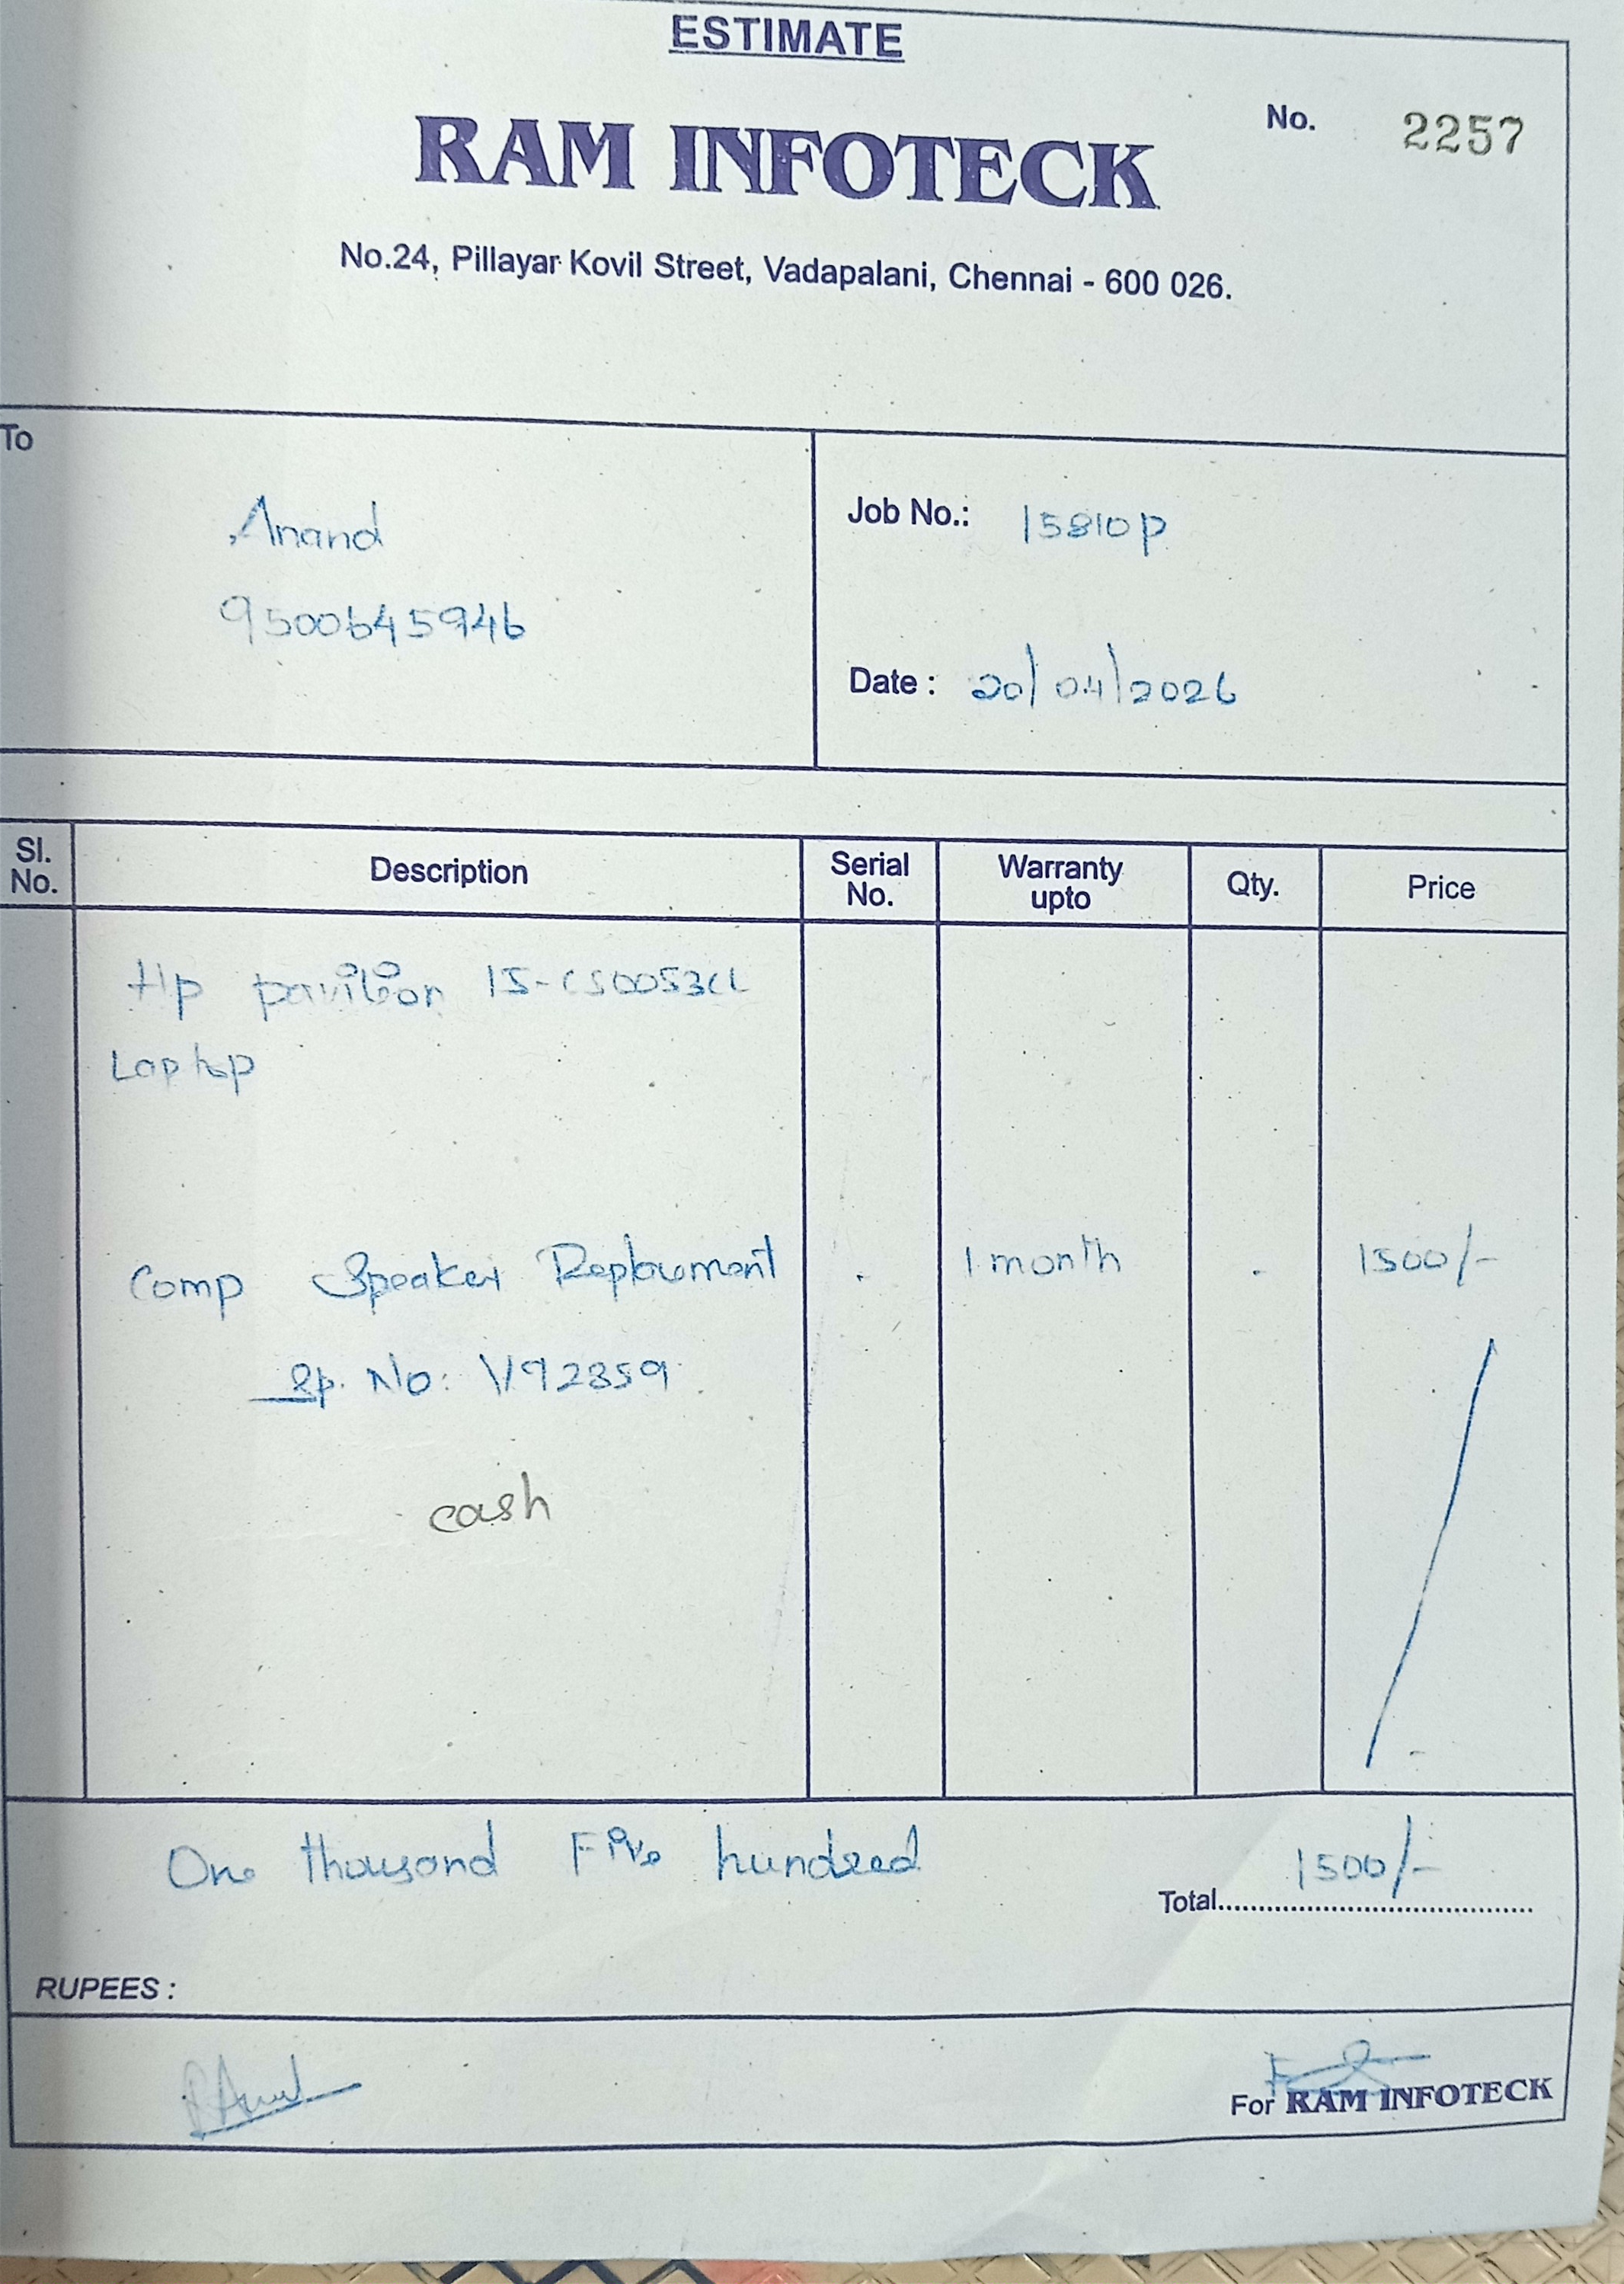 ESTIMATE
No. 2257
RAM INFOTECK
No.24, Pillayar Kovil Street, Vadapalani, Chennai - 600 026.
To
Anand
9500645946
Job No.: 15810p
Date : 20/04/2026
Sl. No. Description Serial No. Warranty upto Qty. Price
Hp pavilion 15-CS0053CL
Laptop
Comp Speaker Replacement - 1 month - 1500/-
Sp. No: V92859
cash
One thousand Five hundred
Total 1500/-
RUPEES :
For RAM INFOTECK